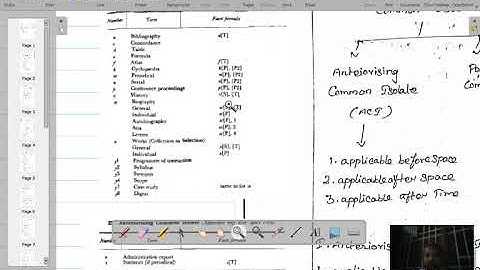 Number Term Facet formula
a Bibliography a[T]
c Concordance
d Table
e Formula
f Atlas f[T]
k Cyclopaedia k[P], [P2]
m Periodical m[P], [P2]
n Serial n[P], [P2]
p Conference proceedings p[P], [P2]
v History v[S], [T]
w Biography
General
Individual w[P]
Autobiography w[P], 1
Ana w[P], 2
Letters w[P], 4
x Works (Collection or Selection)
General x[S], [T]
Individual x[P]
y1 Programme of instruction
y2 Syllabus
y3 Synopsis
y4 Scope
y7 Case study same as for x
y8 Digest
Number Term Facet formula
Administration report
Common
Anteriorising
Common Isolate
(ACI)
1. applicable before space
2. applicable after space
3. applicable after Time
Page 1
Page 2
Page 3
Page 4
Page 5
Page 6
Page 7